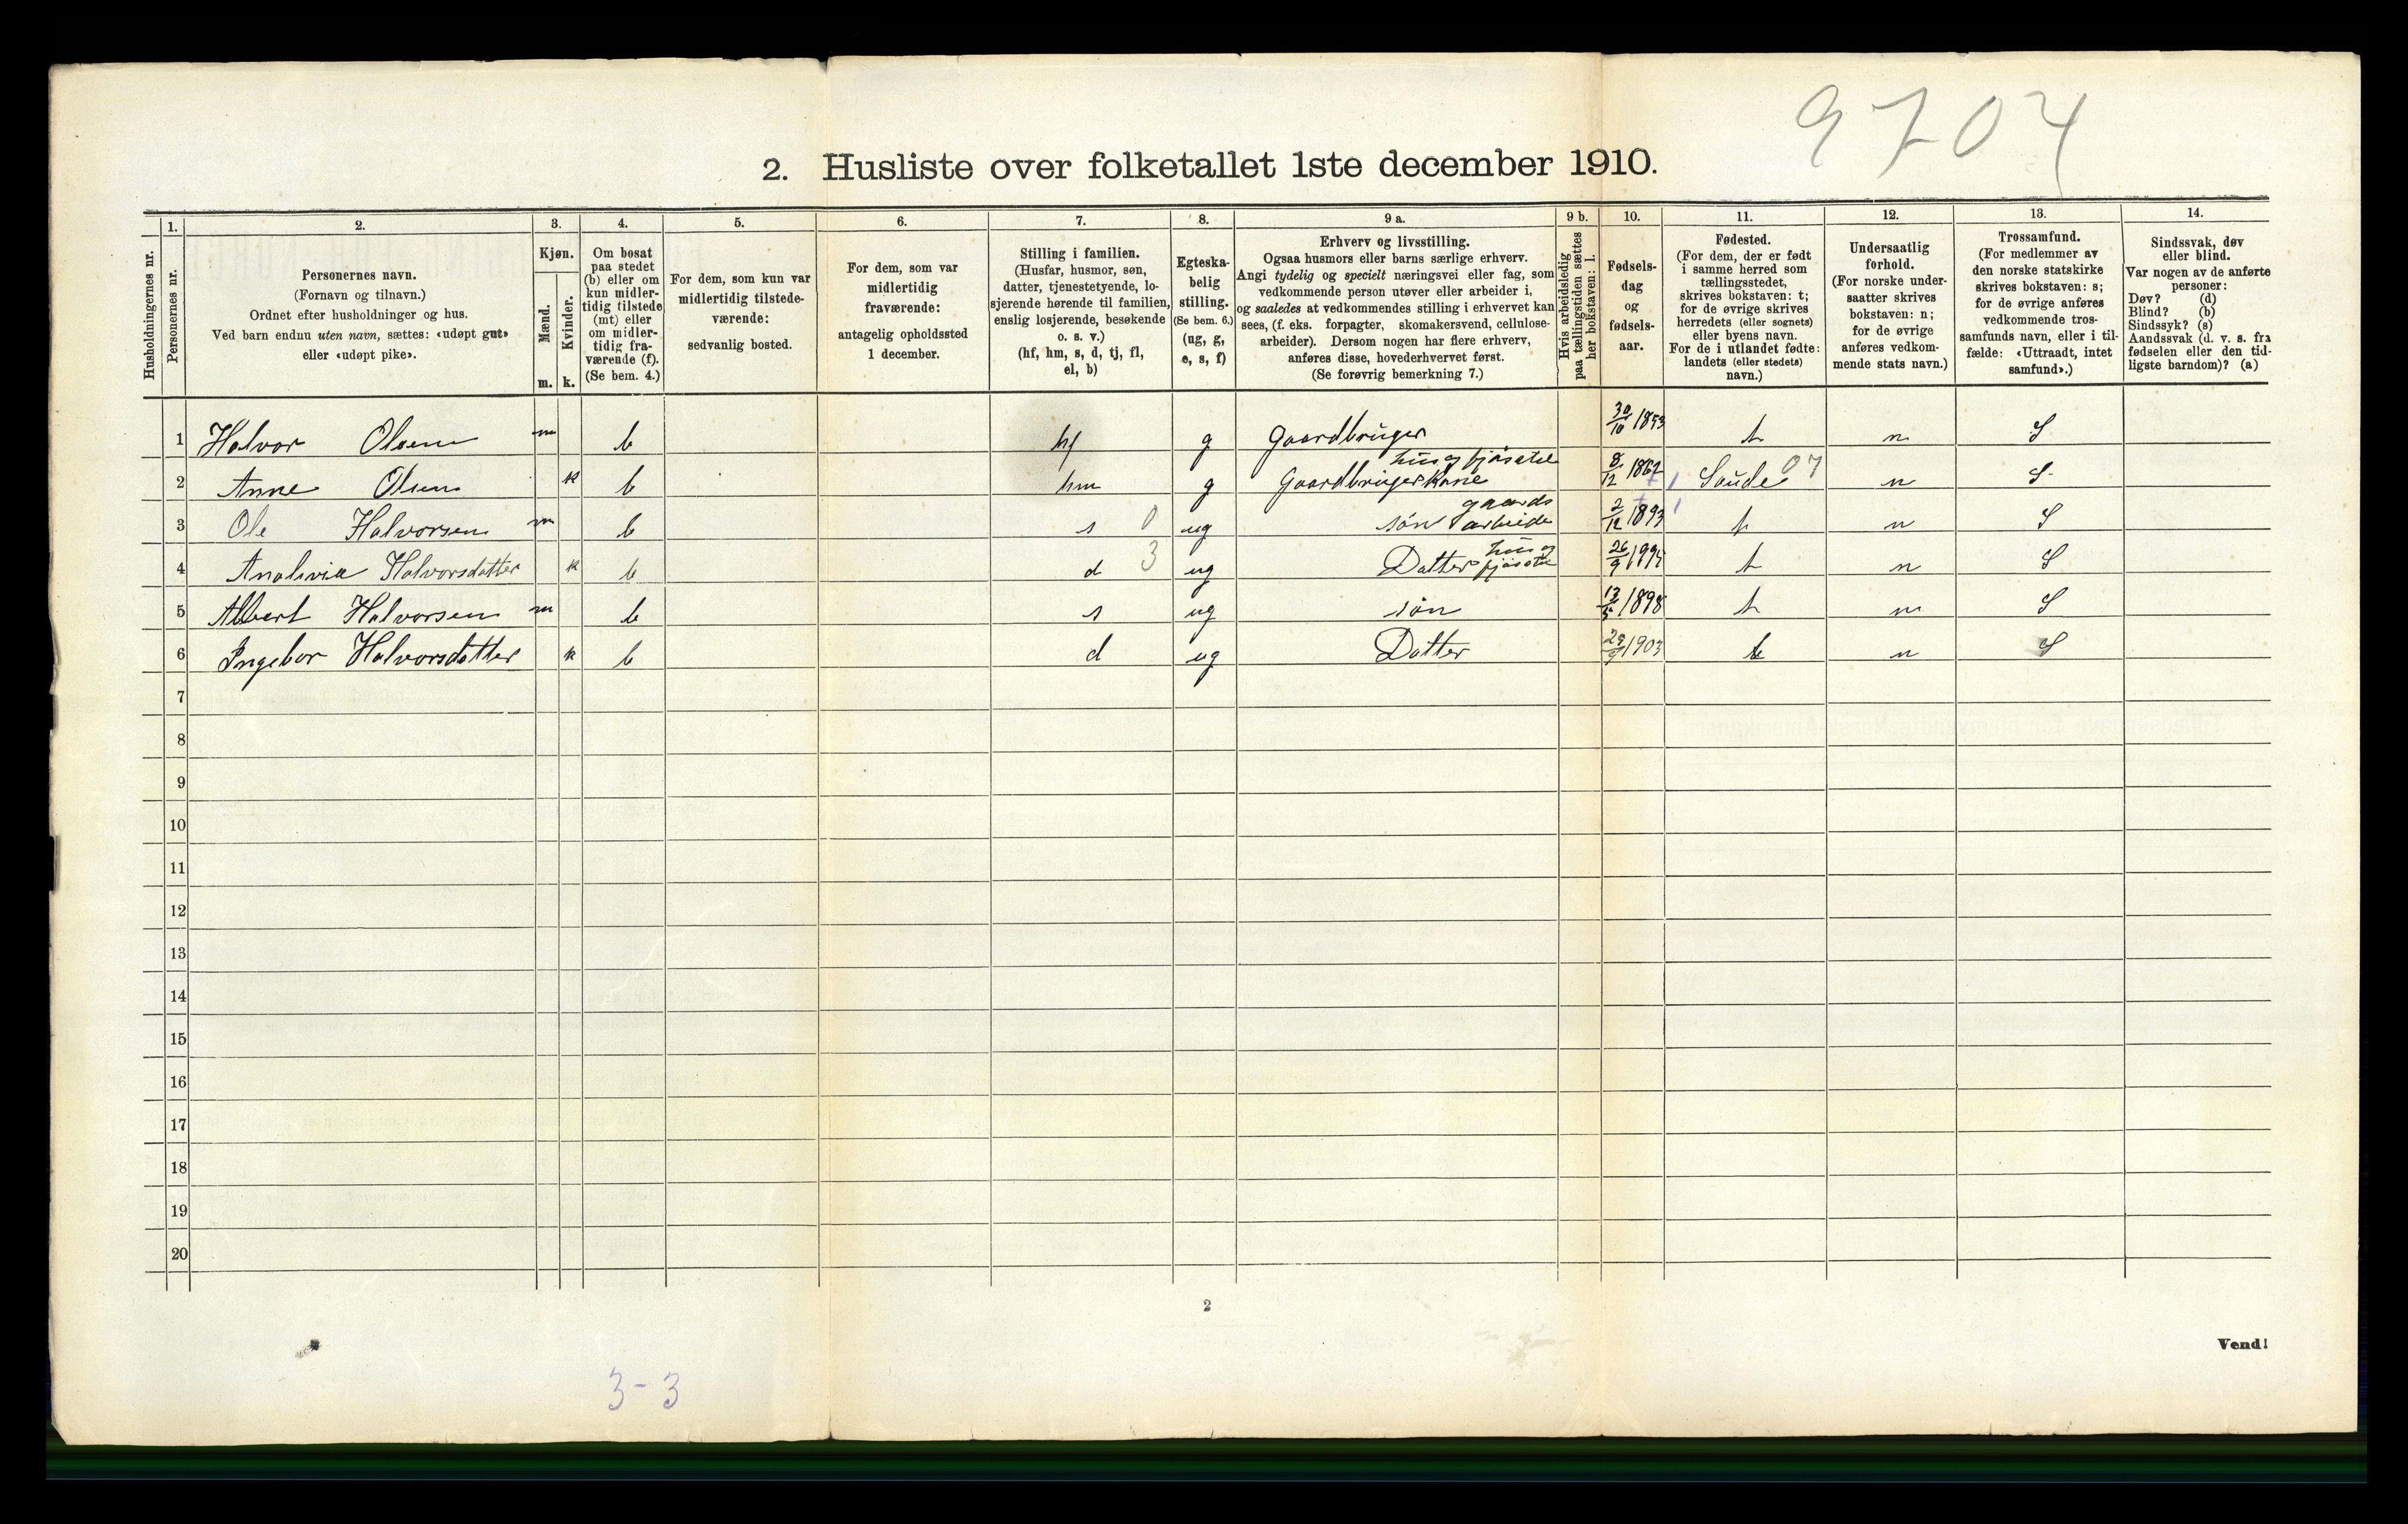 9704
2. Husliste over folketallet 1ste december 1910.
1. 2. 3. 4. 5. 6. 7. 8. 9 a. 9 b. 10. 11. 12. 13. 14.
Husholdningernes nr.
Personernes nr.
Personernes navn.
(Fornavn og tilnavn.)
Ordnet efter husholdninger og hus.
Ved barn endnu uten navn, sættes: «udøpt gut»
eller «udøpt pike».
Kjøn.
Mænd.
Kvinder.
m. k.
Om bosat
paa stedet
(b) eller om
kun midler-
tidig tilstede
(mt) eller
om midler-
tidig fra-
værende (f).
(Se bem. 4.)
For dem, som kun var
midlertidig tilstede-
værende:
sedvanlig bosted.
For dem, som var
midlertidig
fraværende:
antagelig opholdssted
1 december.
Stilling i familien.
(Husfar, husmor, søn,
datter, tjenestetyende, lo-
sjerende hørende til familien,
enslig losjerende, besøkende
o. s. v.)
(hf, hm, s, d, tj, fl,
el, b)
Egteska-
belig
stilling.
(Se bem. 6.)
(ug, g,
e, s, f)
Erhverv og livsstilling.
Ogsaa husmors eller barns særlige erhverv.
Angi tydelig og specielt næringsvei eller fag, som
vedkommende person utøver eller arbeider i,
og saaledes at vedkommendes stilling i erhvervet kan
sees, (f. eks. forpagter, skomakersvend, cellulose-
arbeider). Dersom nogen har flere erhverv,
anføres disse, hovederhvervet først.
(Se forøvrig bemerkning 7.)
Hvis arbeidsledig
paa tællingstiden sættes
her bokstaven: l.
Fødsels-
dag
og
fødsels-
aar.
Fødested.
(For dem, der er født
i samme herred som
tællingsstedet,
skrives bokstaven: t;
for de øvrige skrives
herredets (eller sognets)
eller byens navn.
For de i utlandet fødte:
landets (eller stedets)
navn.)
Undersaatlig
forhold.
(For norske under-
saatter skrives
bokstaven: n;
for de øvrige
anføres vedkom-
mende stats navn.)
Trossamfund.
(For medlemmer av
den norske statskirke
skrives bokstaven: s;
for de øvrige anføres
vedkommende tros-
samfunds navn, eller i til-
fælde: «Uttraadt, intet
samfund».)
Sindssvak, døv
eller blind.
Var nogen av de anførte
personer:
Døv? (d)
Blind? (b)
Sindssyk? (s)
Aandssvak (d. v. s. fra
fødselen eller den tid-
ligste barndom)? (a)
1 Halvor Olsen m b hf g Gaardbruger 30/10 1853 t n S
2 Anne Olsen k b hm g Gaardbruger kone hus og fjøsstel 8/12 1867 Saude 07 n S
3 Ole Halvorsen m b s 0 ug søn gaards arbeide 2/12 1893 t n S
4 Halvorsdatter k b d 3 ug Datter hus og fjøsstel 26/9 t n S
5 Albert Halvorsen m b s ug søn 13/5 1898 t n S
6 Ingebor Halvorsdatter k b d ug Datter 29/9 1903 t n S
7
8
9
10
11
12
13
14
15
16
17
18
19
20
2
Vend!
3-3